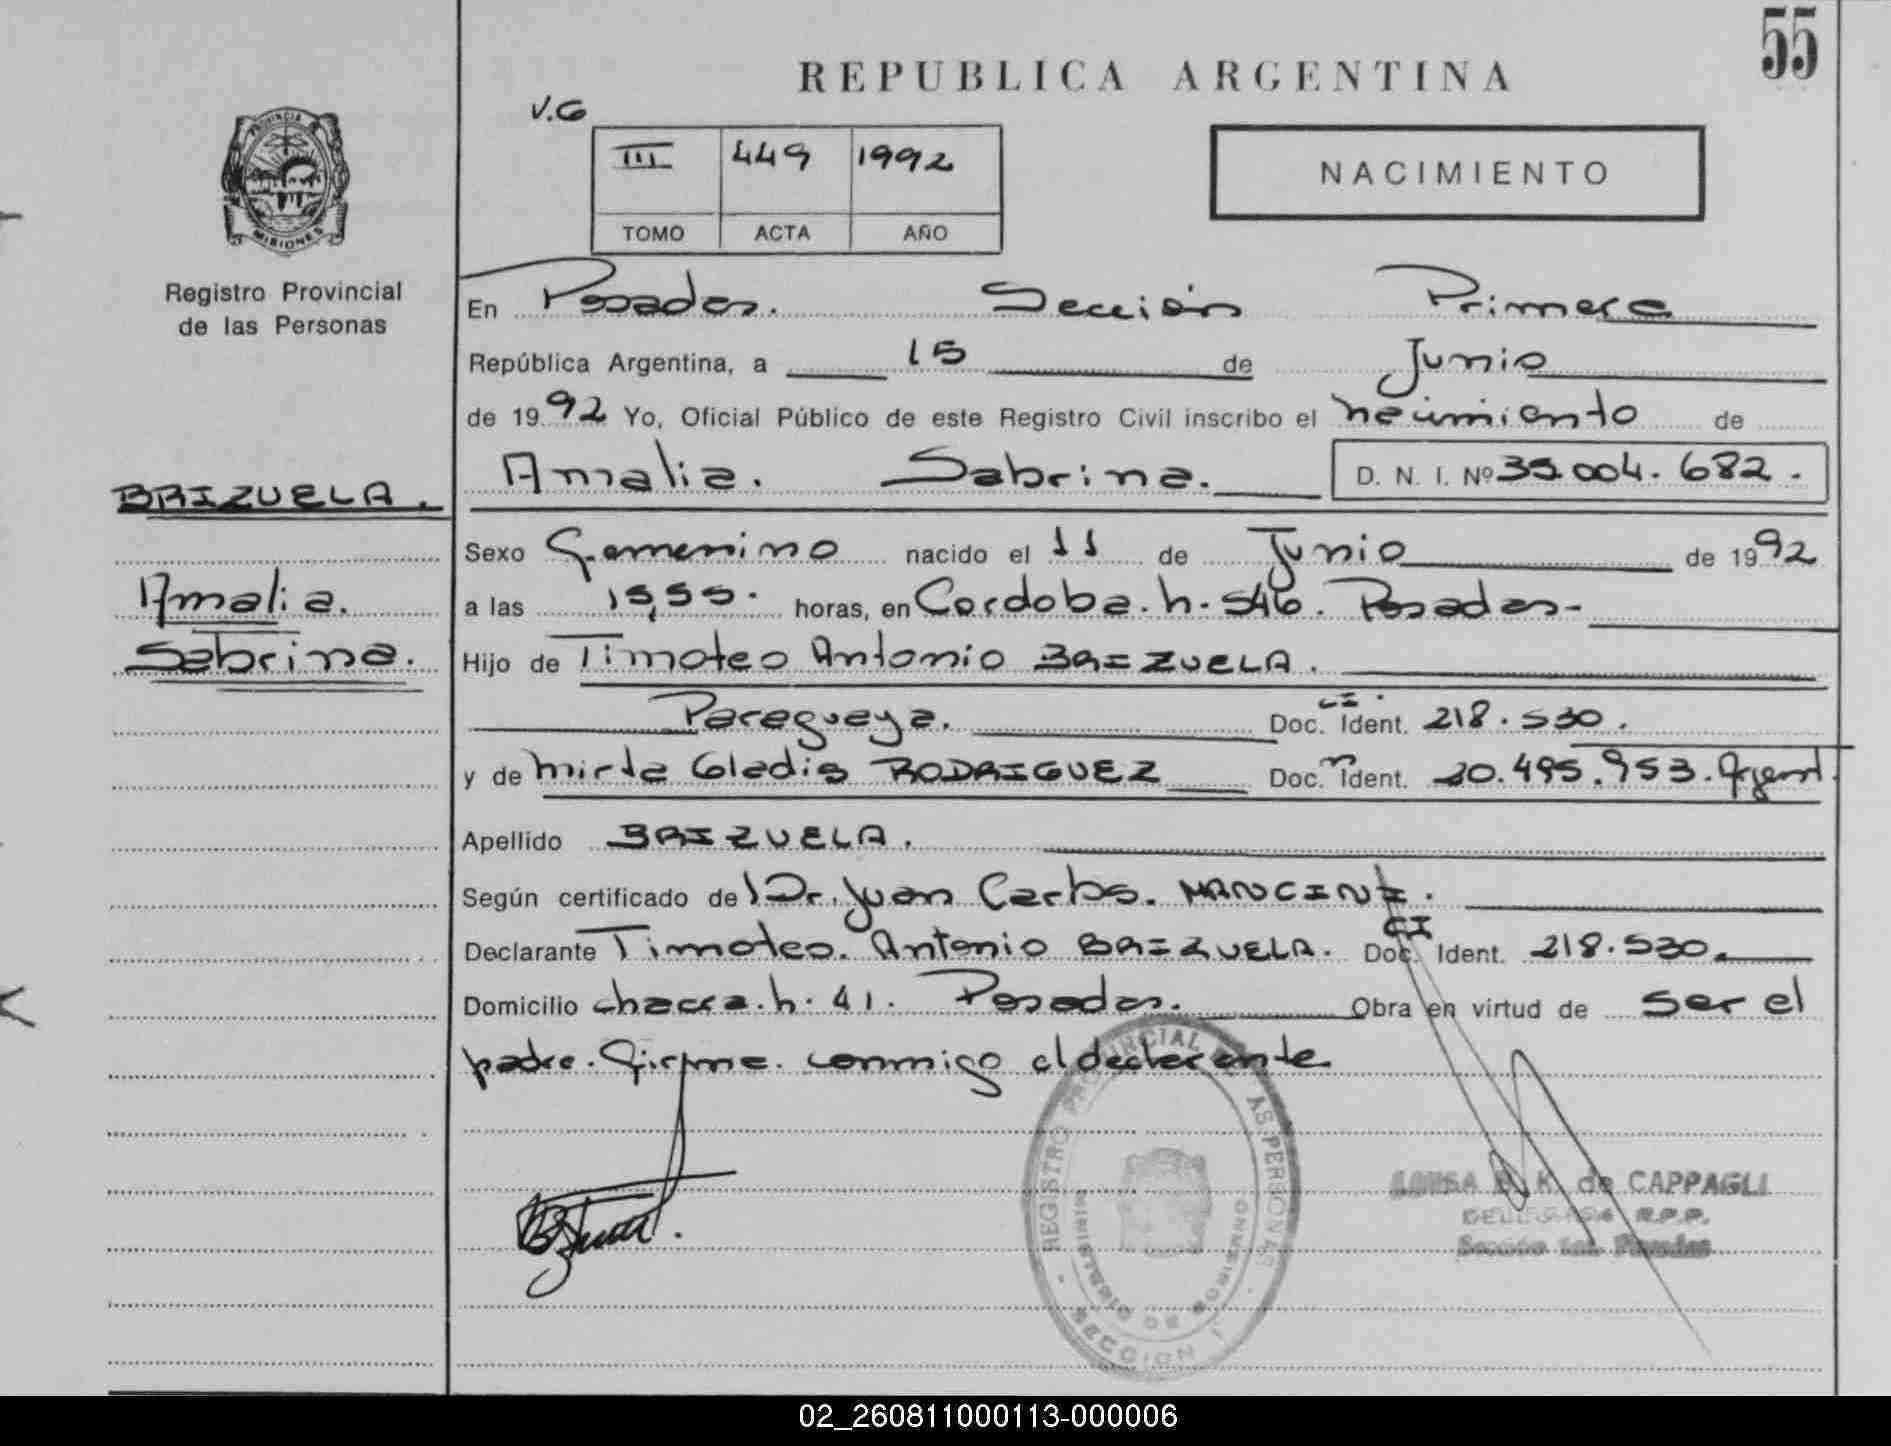 55
REPUBLICA ARGENTINA
V.G
III 449 1992
TOMO ACTA AÑO
NACIMIENTO
PROVINCIA DE MISIONES
Registro Provincial
de las Personas
BRIZUELA.
Amalia.
Sabrina.
En Posadas. Sección Primera
República Argentina, a 15 de Junio
de 1992 Yo, Oficial Público de este Registro Civil inscribo el nacimiento de
Amalia. Sabrina. D. N. I. Nº 35.004.682.
Sexo Femenino nacido el 11 de Junio de 1992
a las 15,55. horas, en Cordoba. n. 546. Posadas-
Hijo de Timoteo Antonio BRIZUELA.
Paraguaya. CI. Doc. Ident. 218.530.
y de Mirta Gladis RODRIGUEZ Doc. Ident. 20.495.953. Argent.
Apellido BRIZUELA.
Según certificado de Dr. Juan Carlos. MANCINI.
Declarante Timoteo. Antonio BRIZUELA. CI Doc. Ident. 218.530.
Domicilio chacra. n. 41. Posadas. Obra en virtud de ser el
padre. Firma. conmigo el declarante
REGISTRO PROVINCIAL DE LAS PERSONAS
MINISTERIO DE GOBIERNO
K. de CAPPAGLI
DELEGADA R.P.P.
Sección 1ra. Posadas
02_260811000113-000006